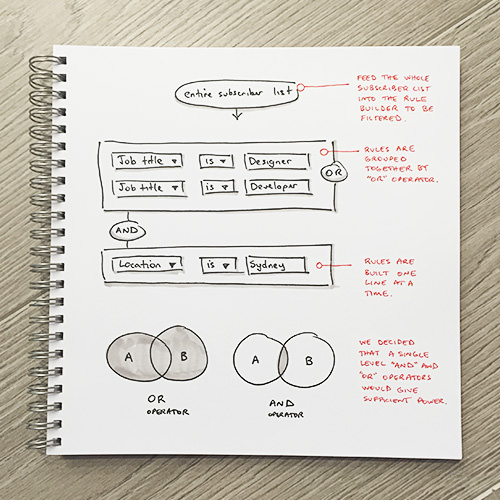 entire subscriber list
FEED THE WHOLE
SUBSCRIBER LIST
INTO THE RULE
BUILDER TO BE
FILTERED.
Job title is Designer
Job title is Developer
OR
RULES ARE
GROUPED
TOGETHER BY
"OR" OPERATOR.
AND
Location is Sydney
RULES ARE
BUILT ONE
LINE AT A
TIME.
A B
OR
OPERATOR
A B
AND
OPERATOR
WE DECIDED
THAT A SINGLE
LEVEL "AND" AND
"OR" OPERATORS
WOULD GIVE
SUFFICIENT POWER.